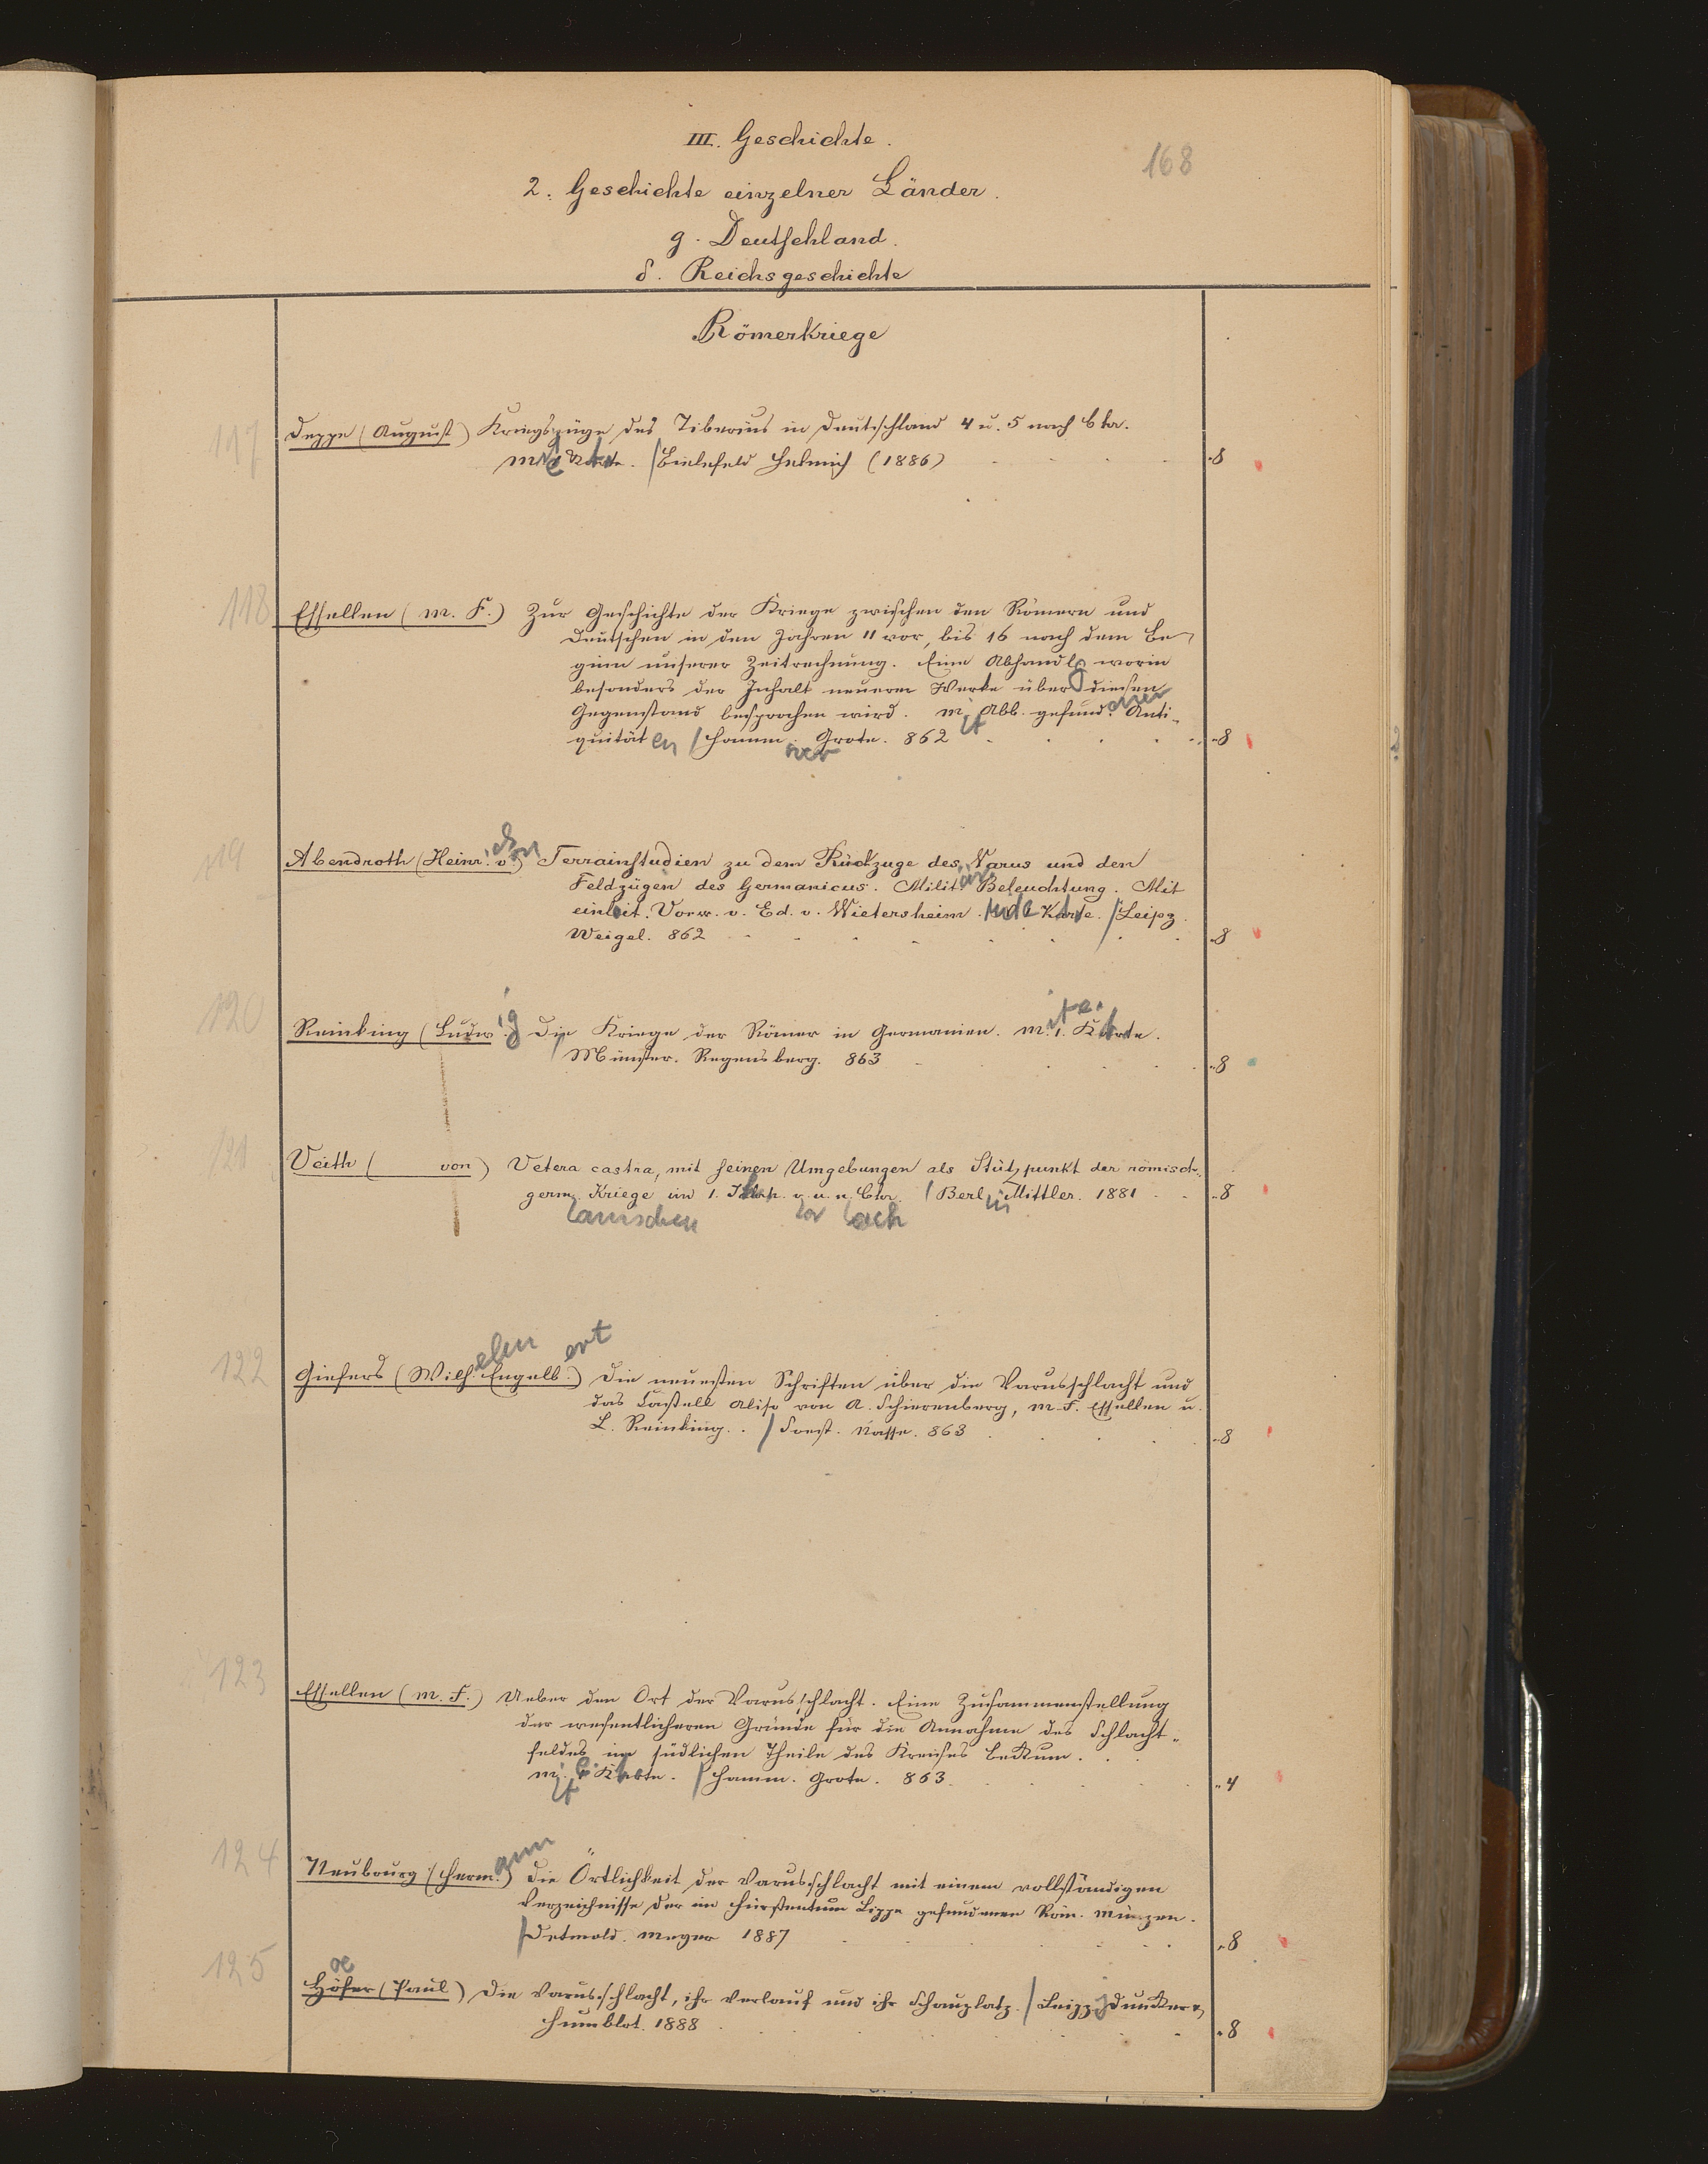 168
III. Geschichte.
2. Geschichte einzelner Länder.
g. Deutschland.
δ. Reichsgeschichte
Römerkriege
117 Deppe (August) Kriegszüge des Tiberius in Deutschland 4 u. 5 nach Chr.
M. 1 Karte. / Bielefeld Helmich (1886) 8
118 Essellen (M. F.) Zur Geschichte der Kriege zwischen den Römern und
Deutschen in den Jahren 11 vor, bis 16 nach dem Be-
ginn unserer Zeitrechnung. Eine Abhandlg worin
besonders der Inhalt neuerer Werke über diesen
Gegenstand besprochen wird. Mit Abb. gefundener Anti-
quitäten / Hamm. Grote. 862 8
119 Abendroth (Heinr. v.) Terrainstudien zu dem Rückzuge des Varus und den
Feldzügen des Germanicus. Militär. Beleuchtung. Mit
einleit. Vorw. v. Ed. v. Wietersheim. Karte. / Leipz.
Weigel. 862 8
120 Reinking (Ludwig) Die Kriege der Römer in Germanien. Mit 1. Karte.
/ Münster. Regensberg. 863 8
121 Veith ( von) Vetera castra, mit seinen Umgebungen als Stützpunkt der römisch-
germanischen Kriege im 1. Jahrh. vor u. nach Chr. / Berlin Mittler. 1881 8
122 Giefers (Wilhelm Engelbert) Die neuesten Schriften über die Varusschlacht und
das Castell Aliso von A. Schierenberg, M. F. Essellen u.
L. Reinking. / Soest. Nasse. 863 8
123 Essellen (M. F.) Ueber den Ort der Varusschlacht. Eine Zusammenstellung
der wesentlicheren Gründe für die Annahme des Schlacht-
feldes im südlichen Theile des Kreises Beckum.
Mit Karte. / Hamm. Grote. 863 4
124 Neubourg (Hermann) Die Örtlichkeit der Varusschlacht mit einem vollständigen
Verzeichnisse der im Fürstentum Lippe gefundenen Röm. Münzen.
/ Detmold. Meyer 1887 8
125 Höfer (Paul) Die Varusschlacht, ihr Verlauf und ihr Schauplatz. / Leipzig Duncker &
Humblot. 1888 8